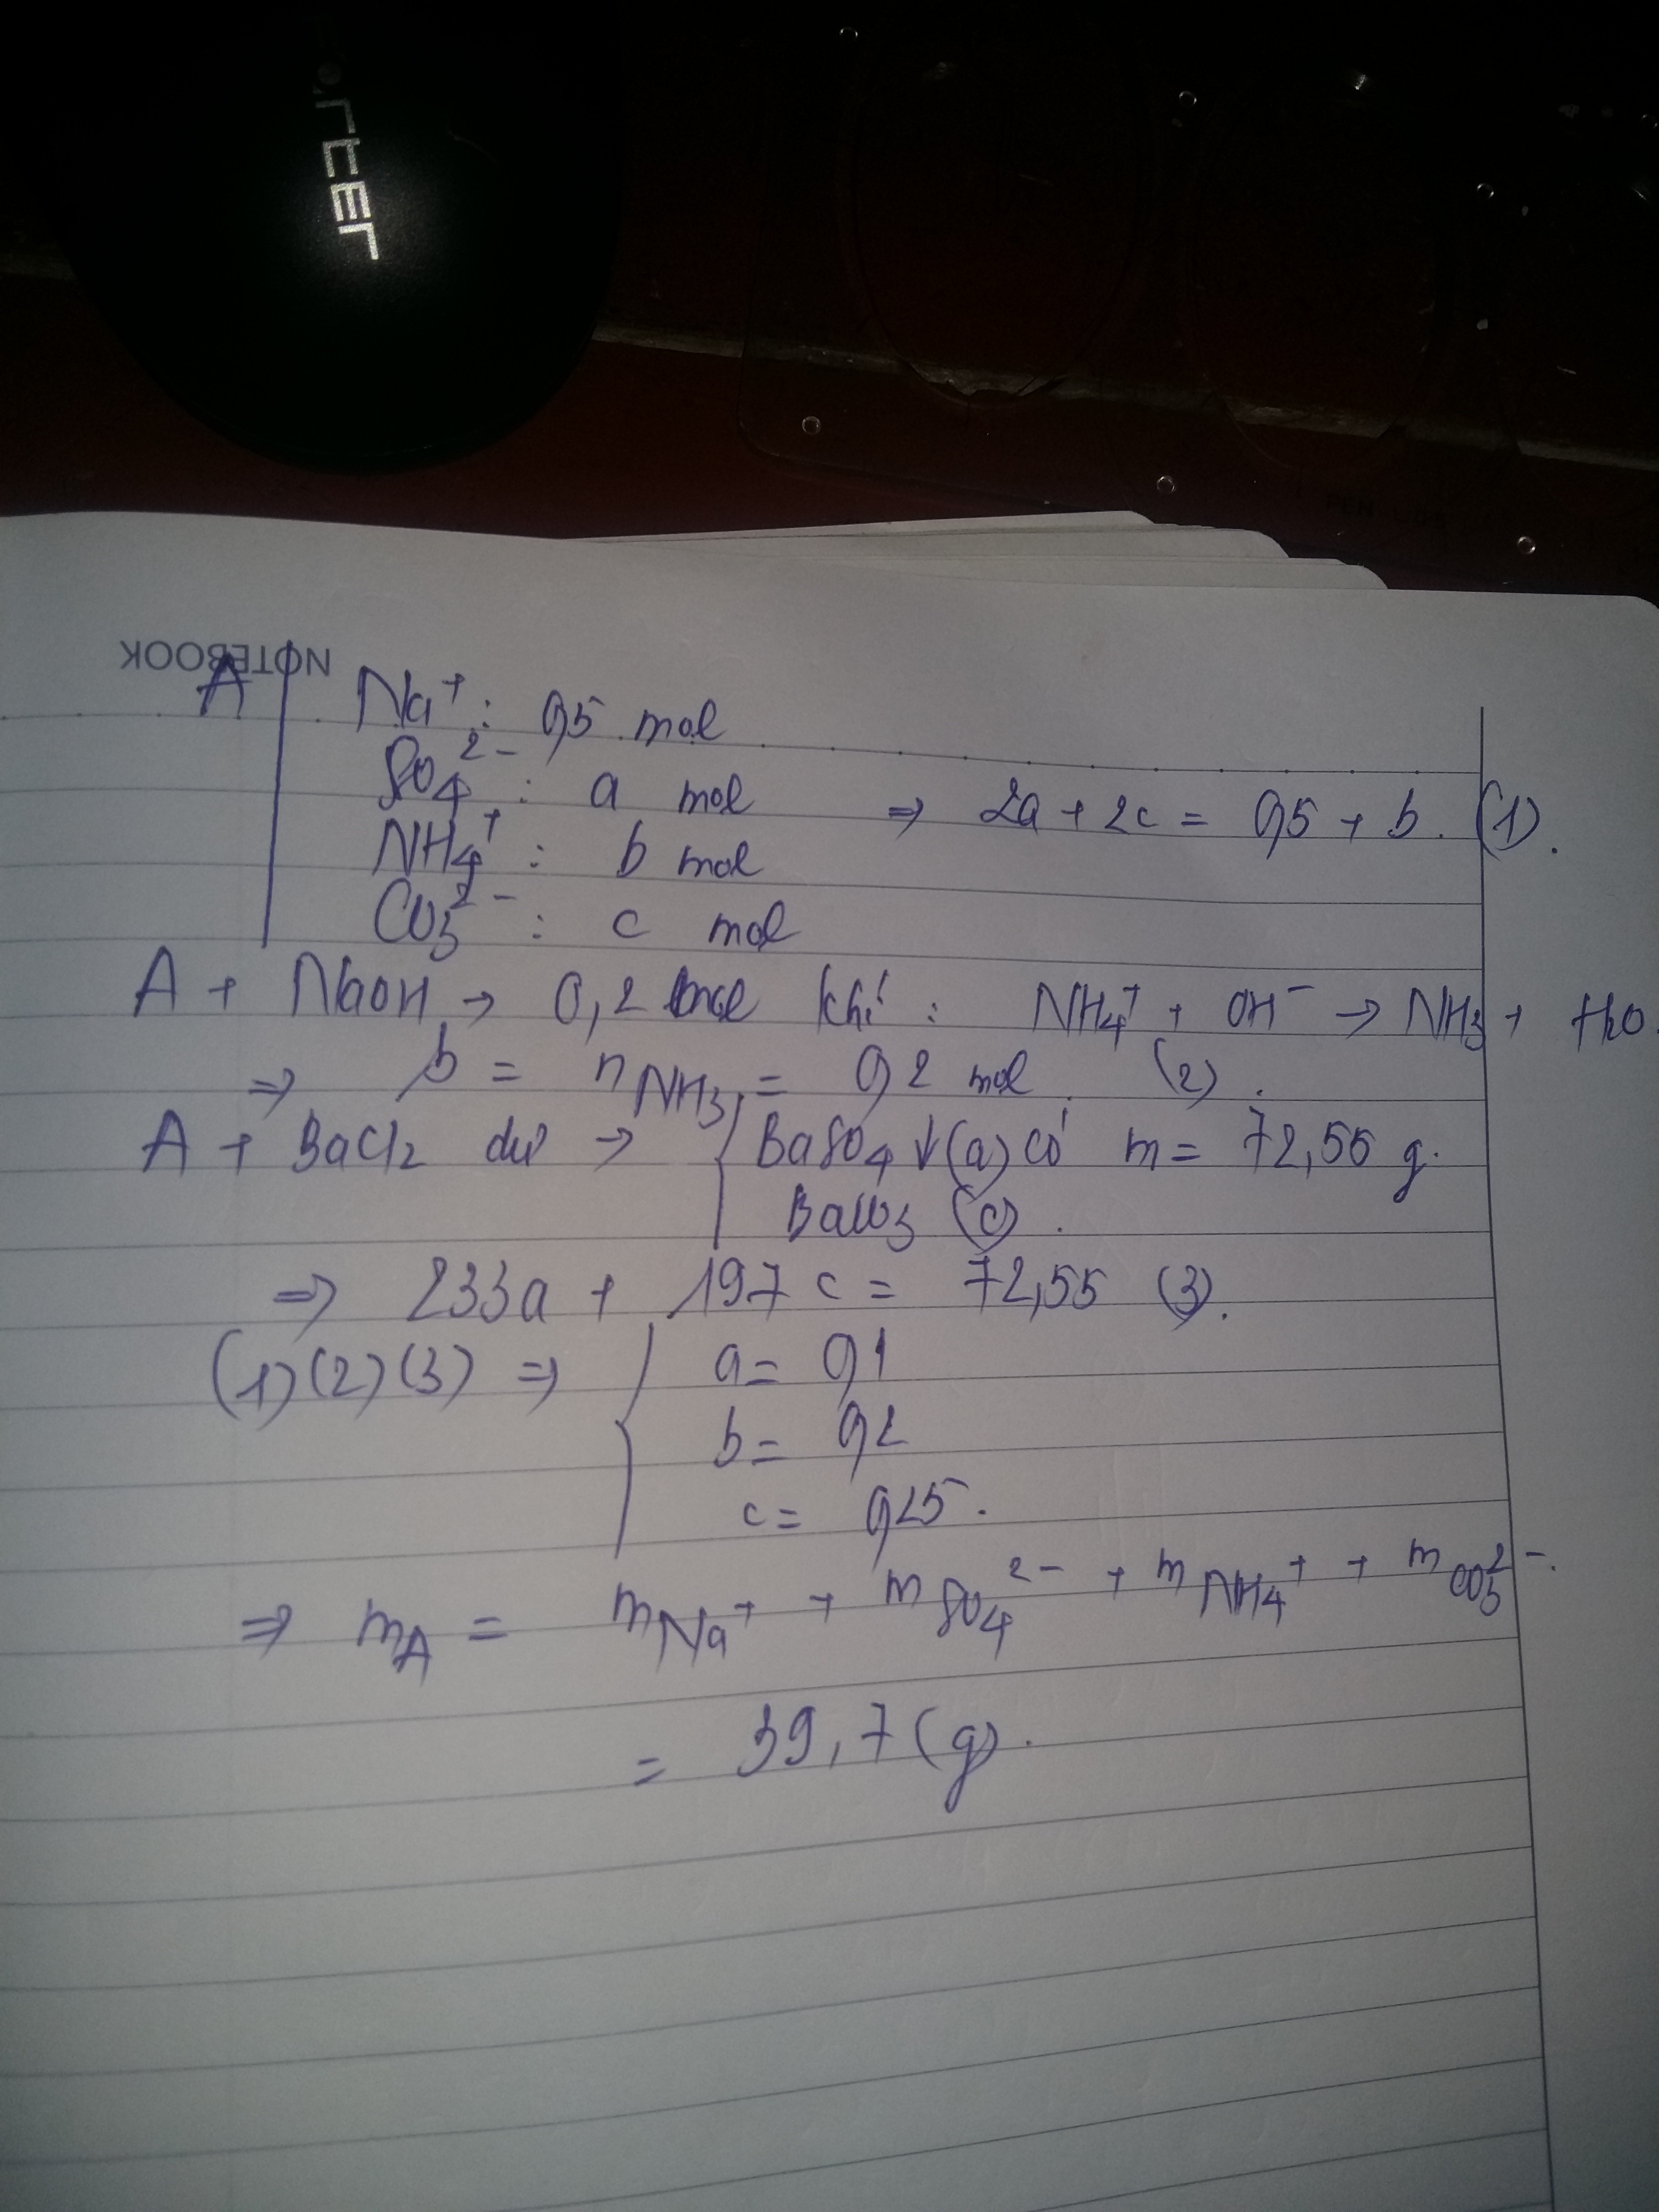 ORTER
NOTEBOOK
A | Na⁺ : 0,5 mol
SO₄²⁻ : a mol ⇒ 2a + 2c = 0,5 + b. (1).
NH₄⁺ : b mol
CO₃²⁻ : c mol
A + NaOH → 0,2 mol khí : NH₄⁺ + OH⁻ → NH₃ + H₂O.
⇒ b = nNH₃ = 0,2 mol (2).
A + BaCl₂ dư → { BaSO₄ ↓ (a) có m = 72,55 g.
BaCO₃ (c).
⇒ 233a + 197c = 72,55 (3).
(1)(2)(3) ⇒ { a = 0,1
b = 0,2
c = 0,25.
⇒ mA = mNa⁺ + mSO₄²⁻ + mNH₄⁺ + mCO₃²⁻.
= 39,7 (g).